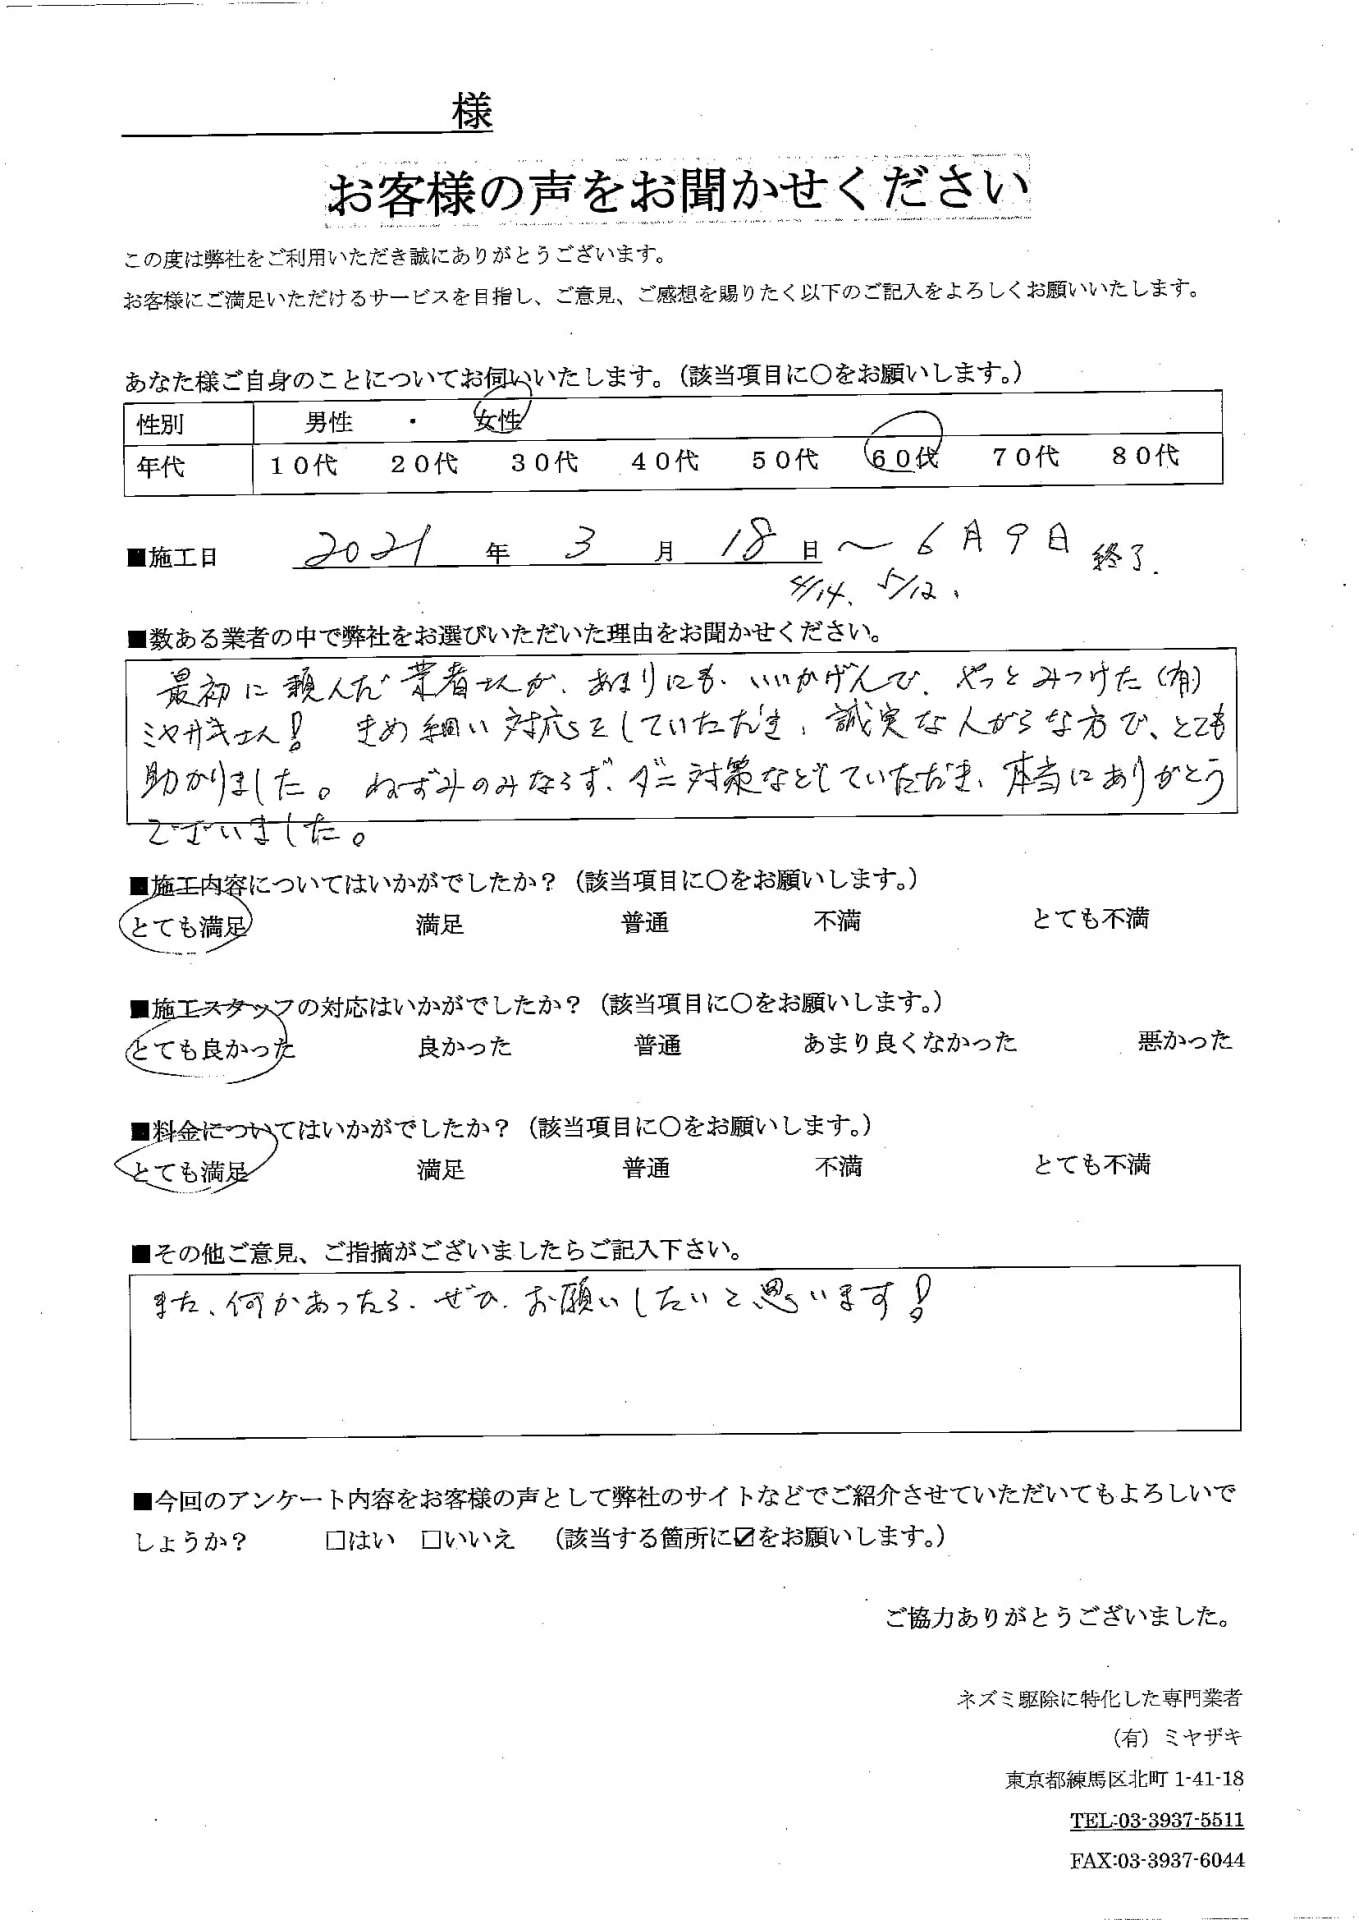 様
お客様の声をお聞かせください
この度は弊社をご利用いただき誠にありがとうございます。
お客様にご満足いただけるサービスを目指し、ご意見、ご感想を賜りたく以下のご記入をよろしくお願いいたします。
あなた様ご自身のことについてお伺いいたします。（該当項目に○をお願いします。）
性別 男性 ・ 女性
年代 １０代 ２０代 ３０代 ４０代 ５０代 ６０代 ７０代 ８０代
■施工日 2021 年 3 月 18 日 〜 6月9日 終了.
4/14、5/12、
■数ある業者の中で弊社をお選びいただいた理由をお聞かせください。
最初に頼んだ業者さんが、あまりにも、いいかげんで、やっとみつけた(有)
ミヤザキさん! きめ細い対応をしていただき、誠実な人がらな方で、とても
助かりました。ねずみのみならず、ダニ対策などしていただき、本当にありがとう
ございました。
■施工内容についてはいかがでしたか？（該当項目に○をお願いします。）
とても満足 満足 普通 不満 とても不満
■施工スタッフの対応はいかがでしたか？（該当項目に○をお願いします。）
とても良かった 良かった 普通 あまり良くなかった 悪かった
■料金についてはいかがでしたか？（該当項目に○をお願いします。）
とても満足 満足 普通 不満 とても不満
■その他ご意見、ご指摘がございましたらご記入下さい。
また、何かあったら、ぜひ、お願いしたいと思います!
■今回のアンケート内容をお客様の声として弊社のサイトなどでご紹介させていただいてもよろしいで
しょうか？ □はい □いいえ （該当する箇所に☑をお願いします。）
ご協力ありがとうございました。
ネズミ駆除に特化した専門業者
（有）ミヤザキ
東京都練馬区北町 1-41-18
TEL:03-3937-5511
FAX:03-3937-6044